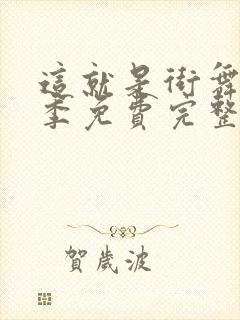 這就是街舞
季免費完整
賀歲波